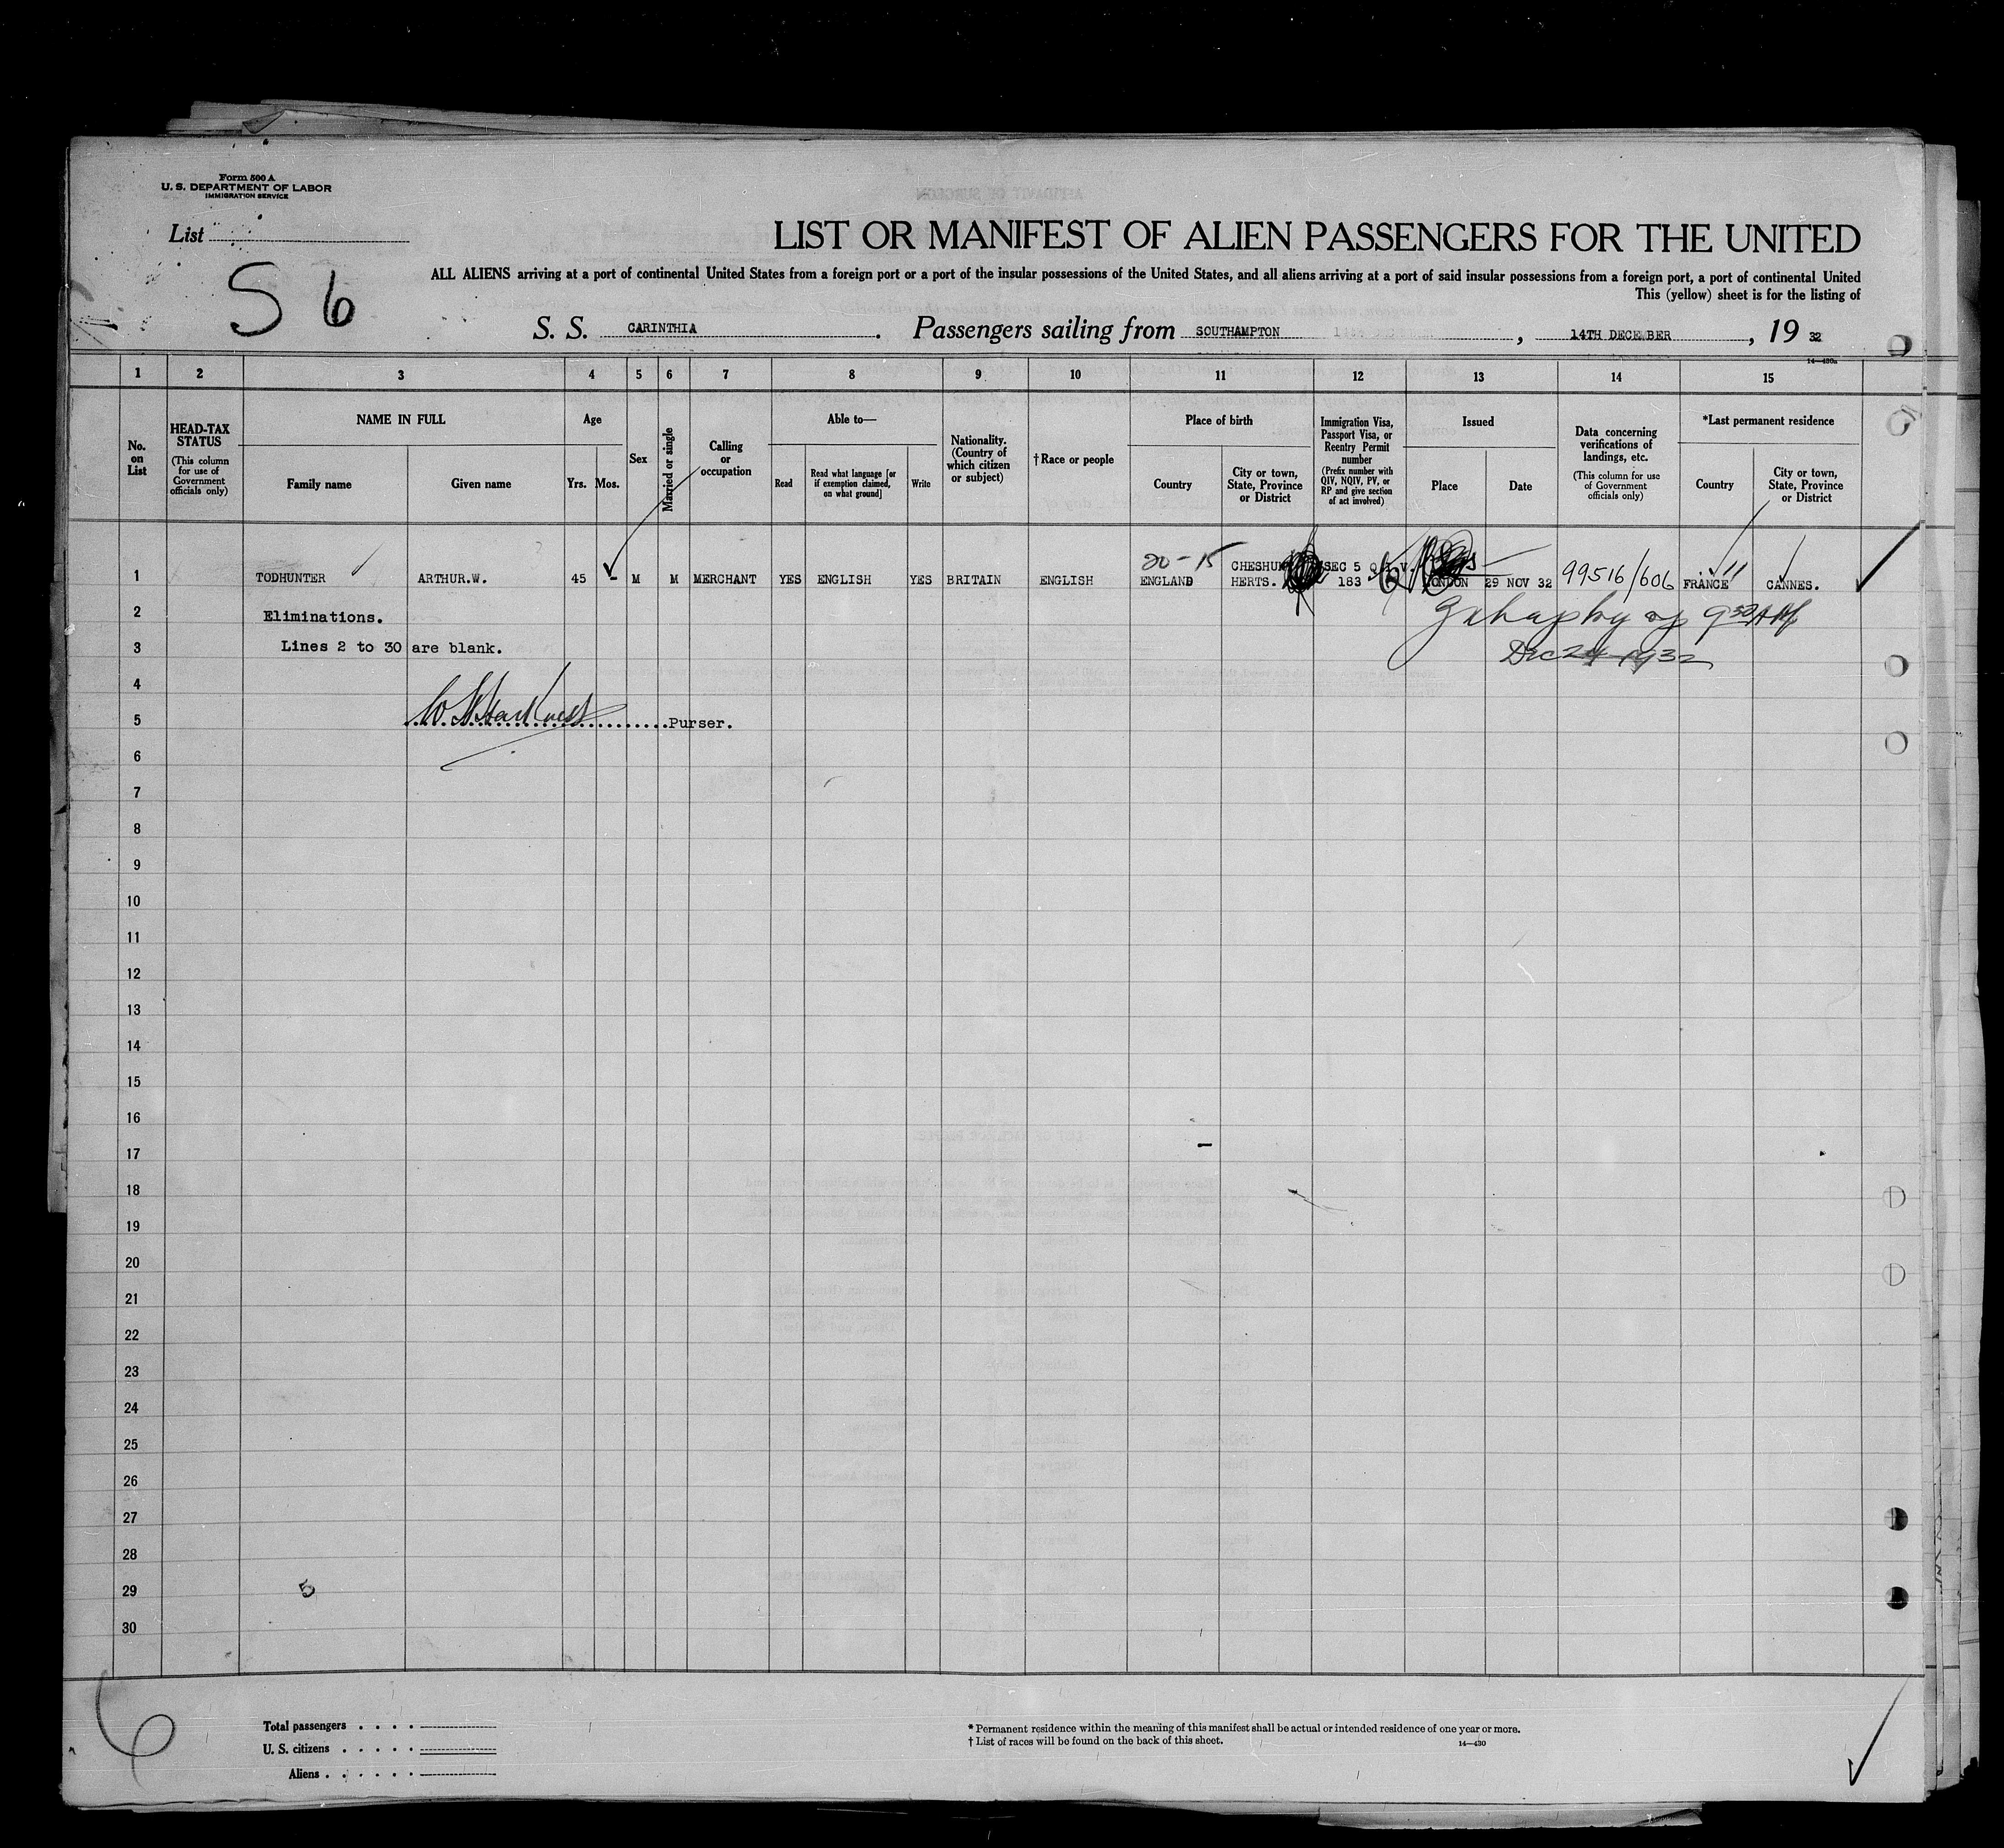 Form 500 A
U. S. DEPARTMENT OF LABOR
IMMIGRATION SERVICE
List
S 6
LIST OR MANIFEST OF ALIEN PASSENGERS FOR THE UNITED
ALL ALIENS arriving at a port of continental United States from a foreign port or a port of the insular possessions of the United States, and all aliens arriving at a port of said insular possessions from a foreign port, a port of continental United
This (yellow) sheet is for the listing of
S. S. CARINTHIA. Passengers sailing from SOUTHAMPTON, 14TH DECEMBER, 19 32
14—430a
1 2 3 4 5 6 7 8 9 10 11 12 13 14 15
No. on List
HEAD-TAX STATUS
(This column for use of Government officials only)
NAME IN FULL
Family name
Given name
Age
Yrs. Mos.
Sex
Married or single
Calling or occupation
Able to—
Read
Read what language [or if exemption claimed, on what ground]
Write
Nationality. (Country of which citizen or subject)
†Race or people
Place of birth
Country
City or town, State, Province or District
Immigration Visa, Passport Visa, or Reentry Permit number
(Prefix number with QIV, NQIV, PV, or RP and give section of act involved)
Issued
Place
Date
Data concerning verifications of landings, etc.
(This column for use of Government officials only)
*Last permanent residence
Country
City or town, State, Province or District
20-15
1 TODHUNTER ARTHUR.W. 45 - M M MERCHANT YES ENGLISH YES BRITAIN ENGLISH ENGLAND HERTS. SEC 5 183 LONDON 29 NOV 32 99516/606 FRANCE CANNES.
2 Eliminations.
3 Lines 2 to 30 are blank.
Dec 24 1932
4
5 Purser.
6
7
8
9
10
11
12
13
14
15
16
17
18
19
20
21
22
23
24
25
26
27
28
29 5
30
6
Total passengers . . . .
U. S. citizens . . . . .
Aliens . . . . . .
* Permanent residence within the meaning of this manifest shall be actual or intended residence of one year or more.
† List of races will be found on the back of this sheet.
14—430